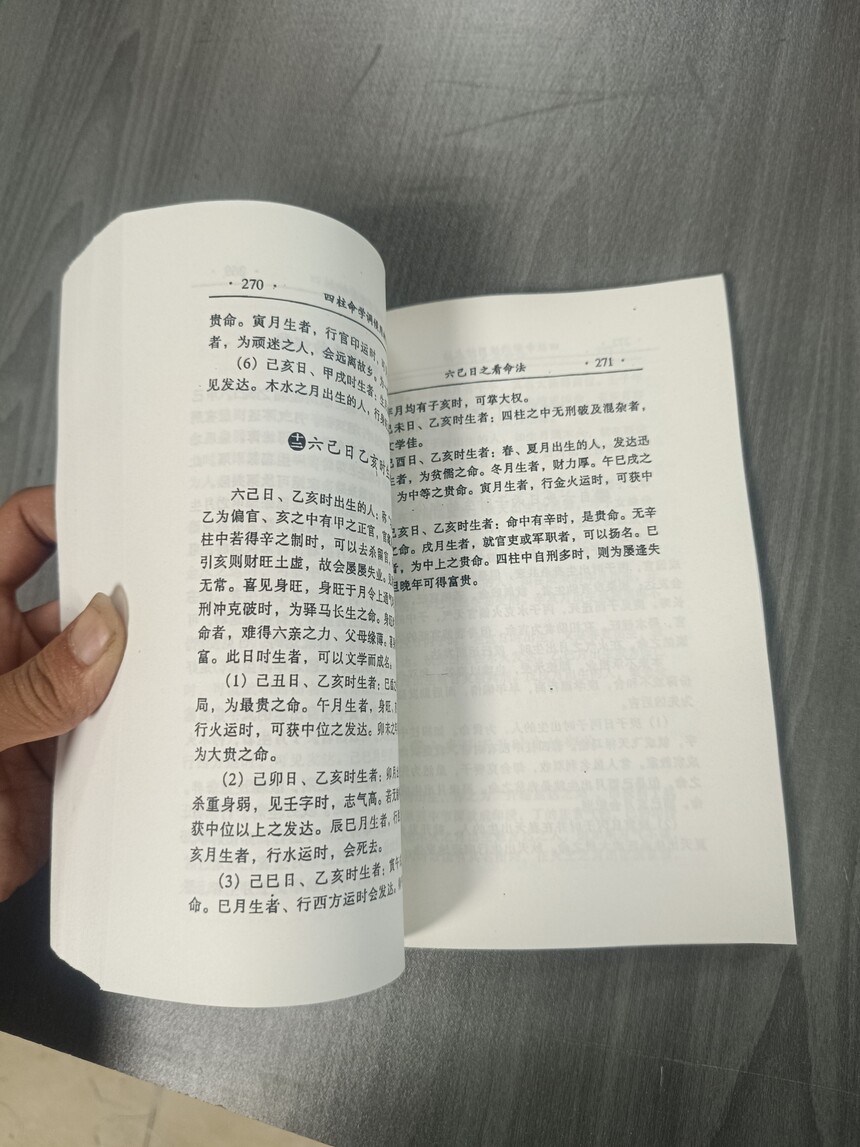 · 270 ·
四柱命学调候用
贵命。寅月生者，行官印运时，
者，为顽迷之人，会远离故乡。
（6）己亥日、甲戌时生者：生
见发达。木水之月出生的人，行身
十二 六己日乙亥时生
六己日、乙亥时出生的人：
乙为偏官、亥之中有甲之正官，官
柱中若得辛之制时，可以去杀留官，
引亥则财旺土虚，故会屡屡失业。
无常。喜见身旺，身旺于月令上通气
刑冲克破时，为驿马长生之命。身
命者，难得六亲之力、父母缘薄。
富。此日时生者，可以文学而成名。
（1）己丑日、乙亥时生者：巳
局，为最贵之命。午月生者，身旺，
行火运时，可获中位之发达。卯未之
为大贵之命。
（2）己卯日、乙亥时生者：卯月
杀重身弱，见壬字时，志气高。若
获中位以上之发达。辰巳月生者，行
亥月生者，行水运时，会死去。
（3）己巳日、乙亥时生者：寅午
命。巳月生者、行西方运时会发达。
六己日之看命法
· 271 ·
年月均有子亥时，可掌大权。
己未日、乙亥时生者：四柱之中无刑破及混杂者，
文学佳。
己酉日、乙亥时生者：春、夏月出生的人，发达迅
生者，为贫儒之命。冬月生者，财力厚。午巳戌之
为中等之贵命。寅月生者，行金火运时，可获中
己亥日、乙亥时生者：命中有辛时，是贵命。无辛
之命。戌月生者，就官吏或军职者，可以扬名。巳
者，为中上之贵命。四柱中自刑多时，则为屡逢失
但晚年可得富贵。